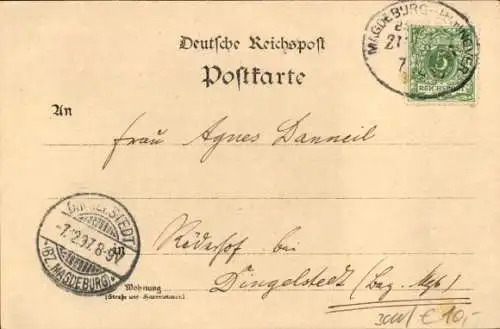 Deutsche Reichspost
Postkarte
MAGDEBURG-HANNOVER
5
REICHSPOST
An
Frau Agnes Danneil
DINGELSTEDT
-7.12.97.8-9V
*(BZ. MAGDEBURG)*
in
Röderhof bei
Dingelstedt (Bez. Mgb)
Wohnung
(Straße und Hausnummer)
€ 10,-